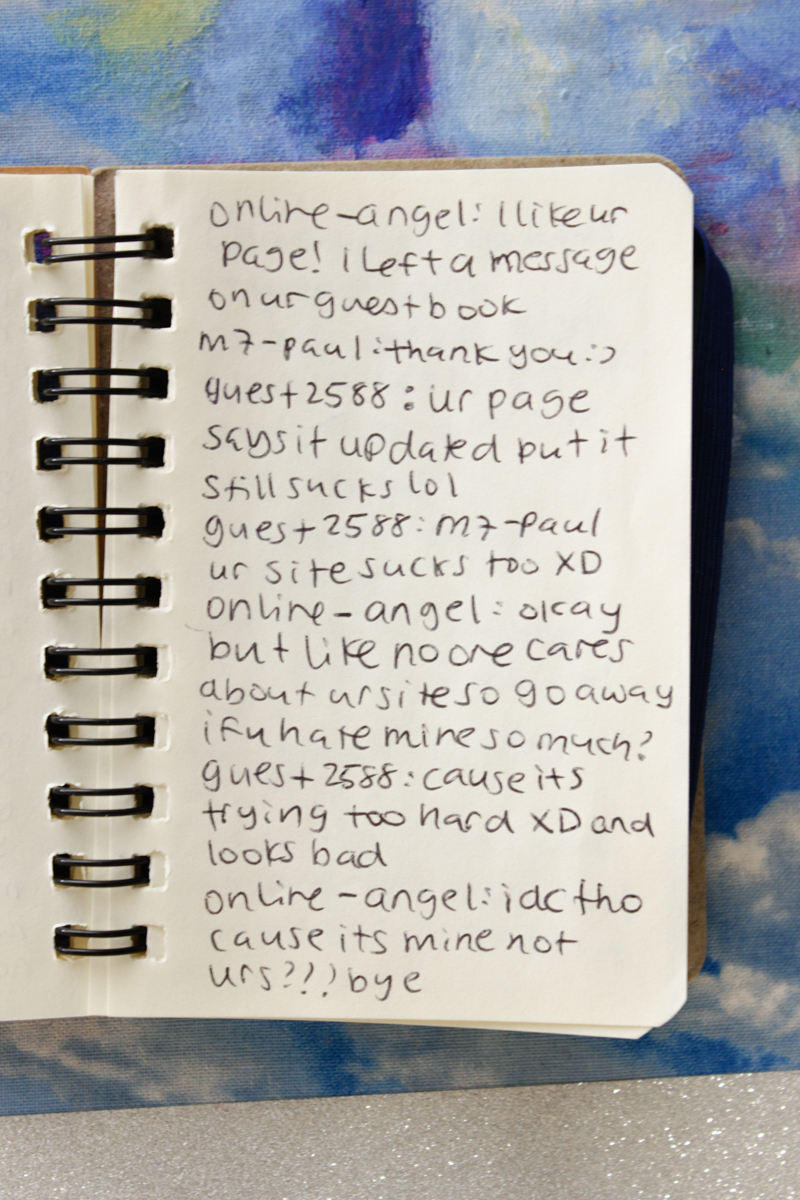 online-angel: I like ur
page! i left a message
on ur guestbook
m7-paul: thank you :)
guest2588: ur page
says it updated but it
still sucks lol
guest2588: m7-paul
ur site sucks too XD
online-angel: okay
but like no one cares
about ur site so go away
if u hate mine so much?
guest2588: cause its
trying too hard XD and
looks bad
online-angel: idc tho
cause its mine not
urs??? bye